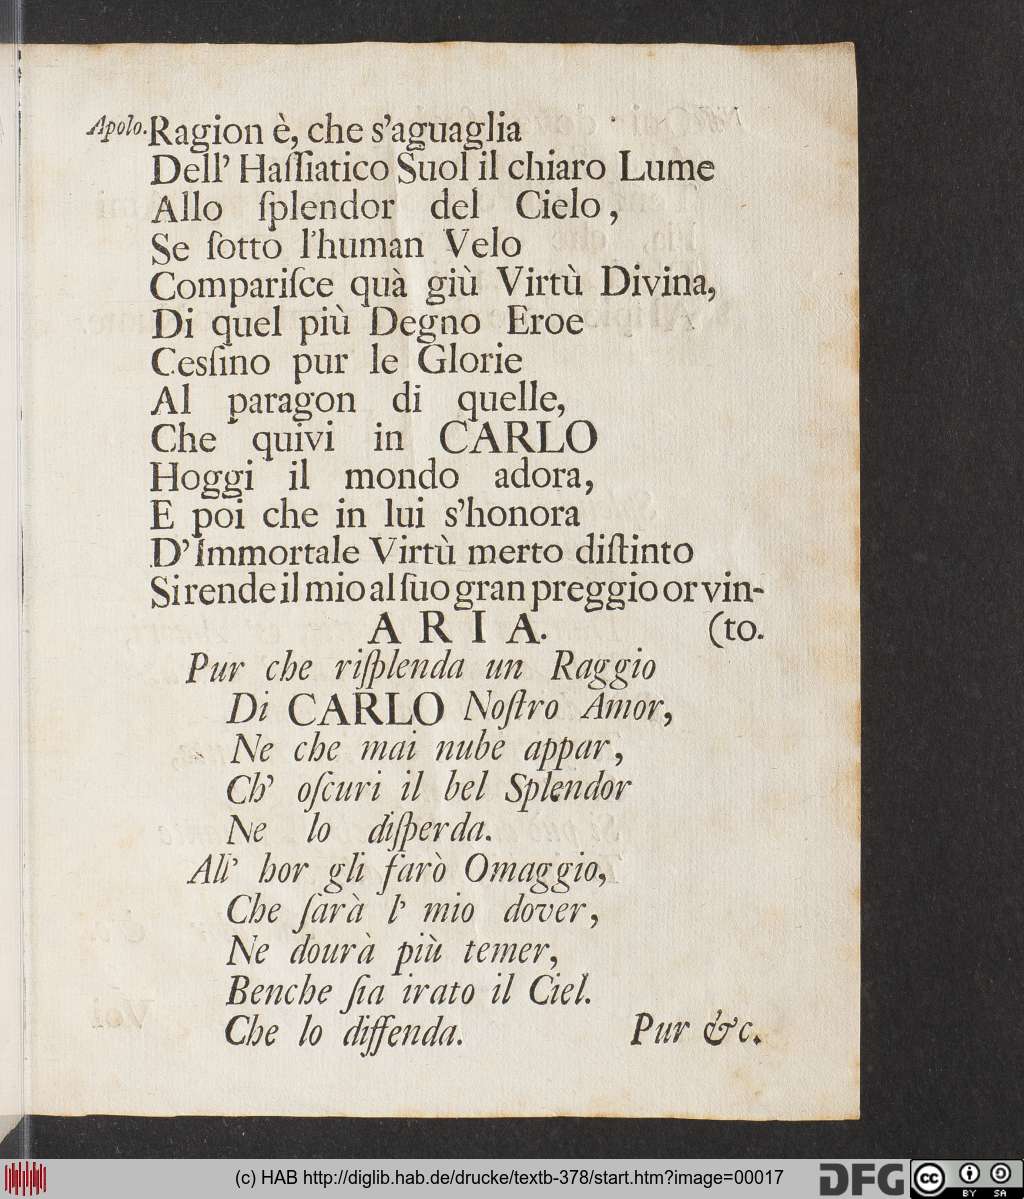 Apolo. Ragion è, che s'aguaglia
Dell' Haſſiatico Suol il chiaro Lume
Allo ſplendor del Cielo,
Se ſotto l'human Velo
Compariſce quà giù Virtù Divina,
Di quel più Degno Eroe
Cesſino pur le Glorie
Al paragon di quelle,
Che quivi in CARLO
Hoggi il mondo adora,
E poi che in lui s'honora
D'Immortale Virtù merto diſtinto
Si rende il mio al ſuo gran preggio or vin-
ARIA. (to.
Pur che riſplenda un Raggio
Di CARLO Noſtro Amor,
Ne che mai nube appar,
Ch' oſcuri il bel Splendor
Ne lo diſperda.
All' hor gli farò Omaggio,
Che ſarà l' mio dover,
Ne dourà più temer,
Benche ſia irato il Ciel.
Che lo diffenda. Pur &c.
(c) HAB http://diglib.hab.de/drucke/textb-378/start.htm?image=00017
DFG
cc BY SA